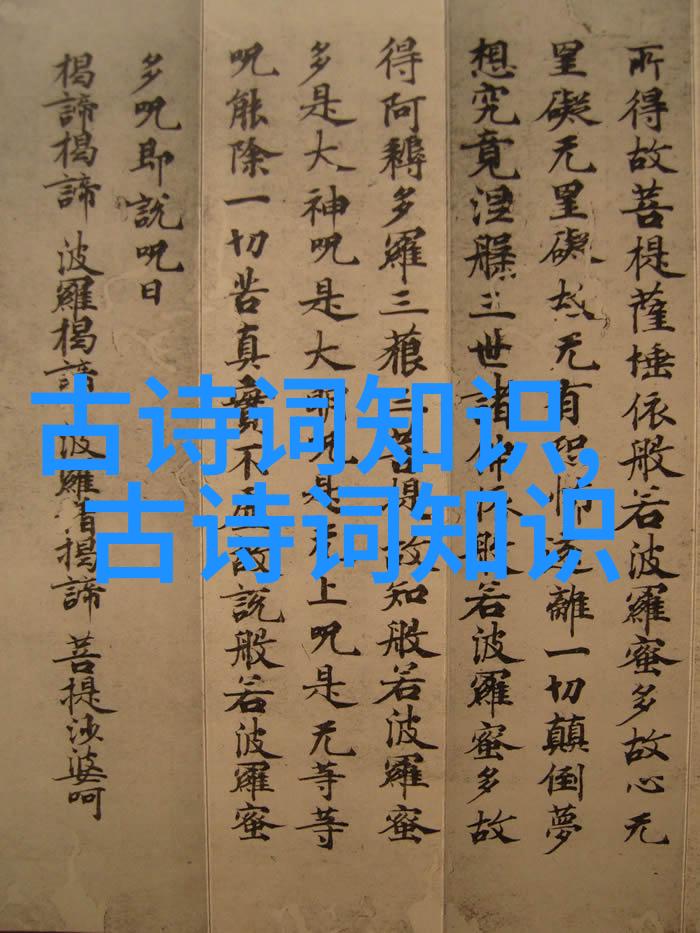 所得故菩提薩埵依般若波羅蜜多故心无
罣礙无罣礙故无有恐怖遠離一切顛倒夢
想究竟涅槃三世諸佛依般若波羅蜜多故
得阿耨多羅三藐三菩提故知般若波羅蜜
多是大神呪是大明呪是无上呪是无等等
呪能除一切苦真實不虛故說般若波羅蜜
多呪即說呪曰
揭諦揭諦 波羅揭諦 波羅僧揭諦 菩提沙婆呵
古诗词知识,
古诗词知识